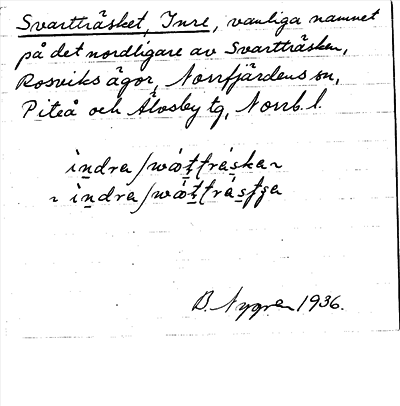 Svartträsket, Inre, vanliga namnet
på det nordligare av Svartträsken,
Rosviks ägor, Norrfjärdens sn,
Piteå och Älvsby tg, Norrb. l.
B. Nygren 1936.